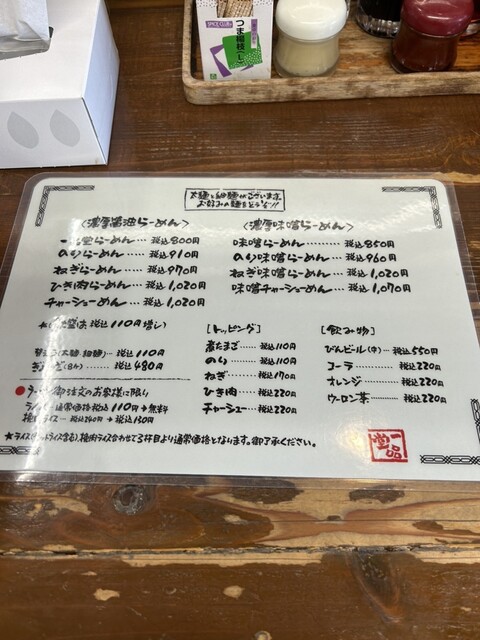 つま楊枝
太麺と細麺がございます。
お好みの麺をどうぞ!!
〈濃厚醤油らーめん〉
一品堂らーめん…税込800円
のりらーめん……税込910円
ねぎらーめん……税込970円
ひき肉らーめん…税込1,020円
チャーシューめん…税込1,020円
〈濃厚味噌らーめん〉
味噌らーめん………税込850円
のり味噌らーめん…税込960円
ねぎ味噌らーめん…税込1,020円
味噌チャーシューめん…税込1,070円
は税込110円増し
(太麺・細麺)…税込110円
(8ヶ)……税込480円
●ラーメン御注文のお客様に限り
ライス…通常価格税込110円→無料
税込240円→税込130円
[トッピング]
煮たまご……税込110円
のり…………税込110円
ねぎ…………税込170円
ひき肉………税込220円
チャーシュー…税込220円
[飲み物]
びんビール(中)…税込550円
コーラ…………税込220円
オレンジ………税込220円
ウーロン茶……税込220円
合わせて3杯目より通常価格となります。御了承ください。
一品堂